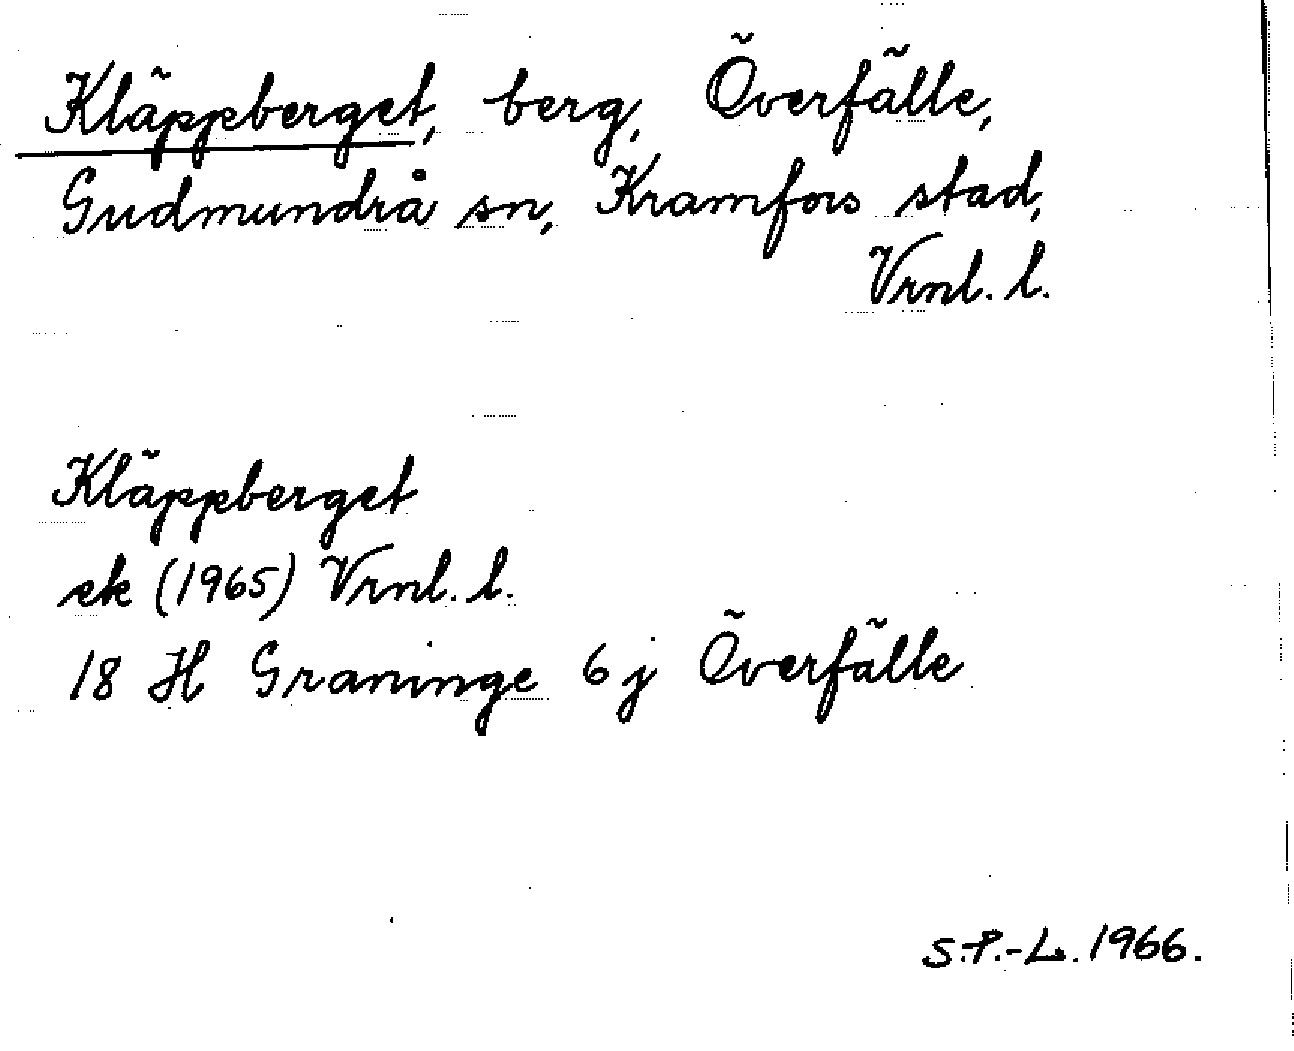 Kläppberget, berg, Överfälle,
Gudmundrå sn, Kramfors stad,
Vrnl. l.
Kläppberget
ek (1965) Vrnl. l.
18 H Graninge 6 j Överfälle
S.P.-L. 1966.